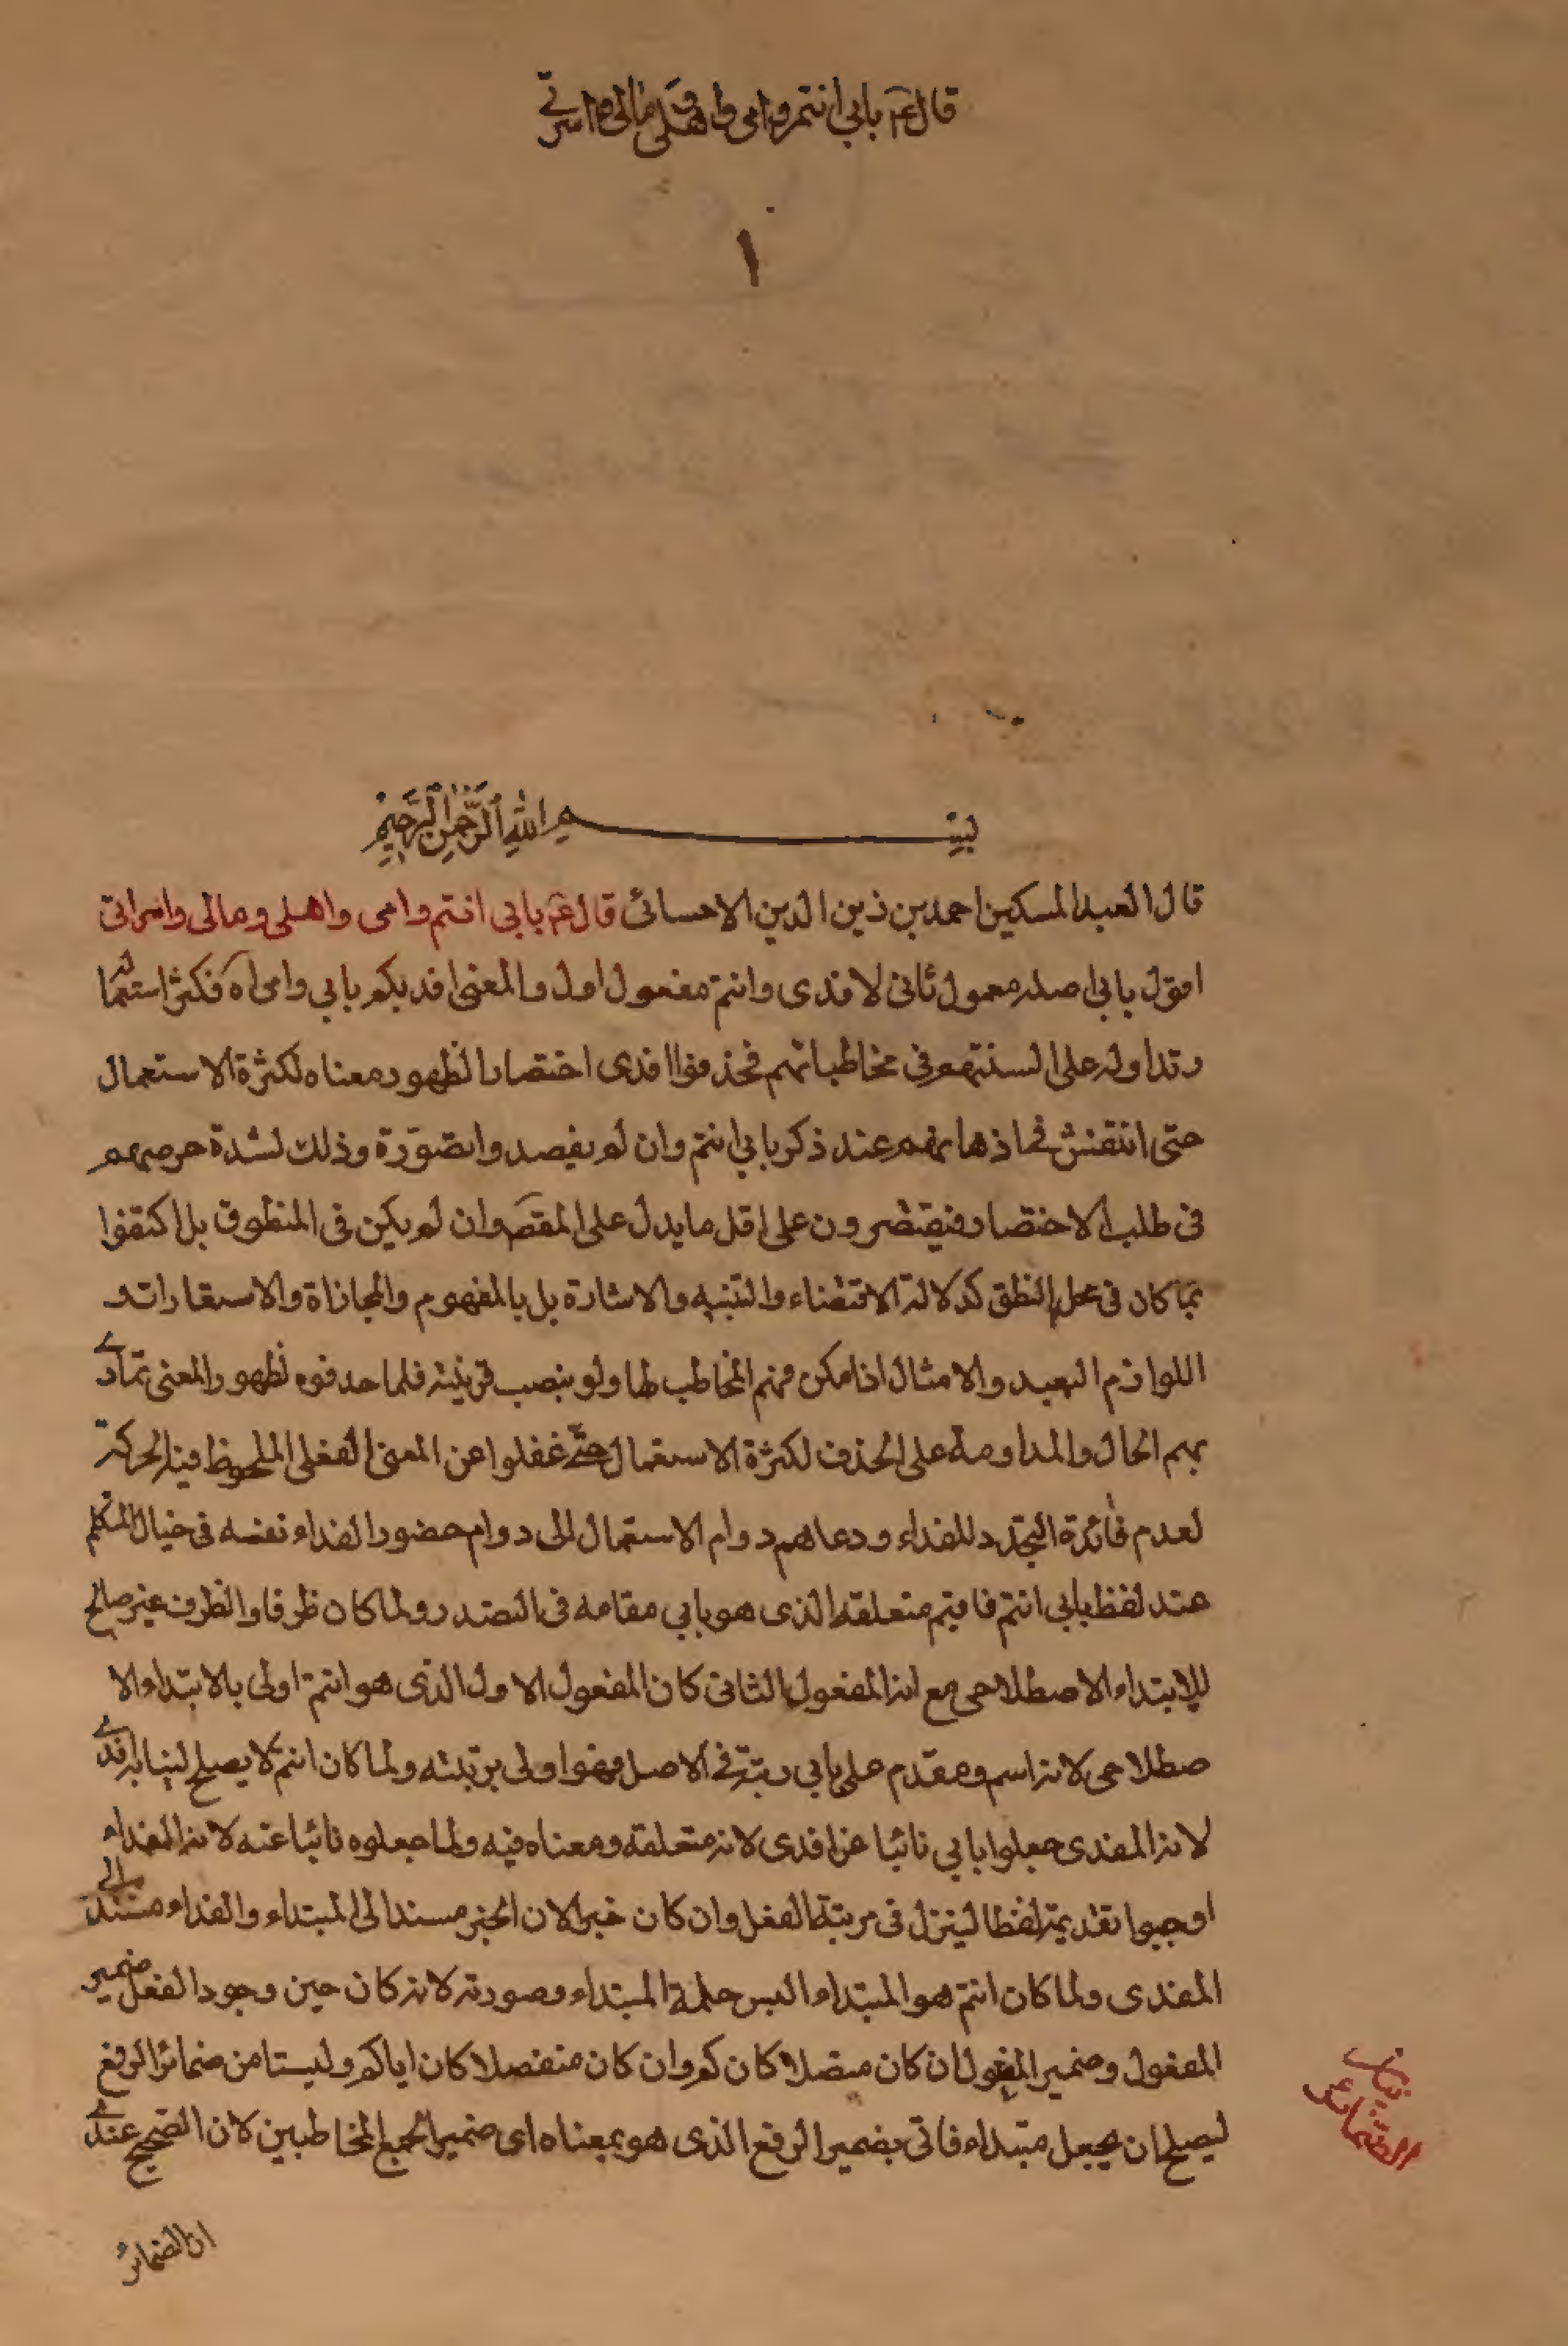 قال ع بابي انتم وامي واهلي ومالي واسرتي
١
بسم الله الرحمن الرحيم
قال العبد المسكين احمد بن زين الدين الاحسائي قال ع بابي انتم وامي واهلي ومالي واسراتي
اقول بابي اصله معمول ثاني لافدى وانتم مفعول اول والمعنى افديكم بابي وامي اه فكثر استعما له
وتداوله على السنتهم في مخاطباتهم فحذفوا افدى اختصارا لظهور معناه لكثرة الاستعمال
حتى انتقش في اذهانهم عند ذكر بابي انتم وان لم يقصدوا تصوره وذلك لشدة حرصهم
في طلب الاختصار فيقتصرون على اقل ما يدل على المقص وان لم يكن في المنطوق بل اكتفوا
بما كان في محل النطق كدلالة الاقتضاء والتنبيه والاشارة بل بالمفهوم والمجازاة والاستعارات و
اللوازم البعيد والامثال اذا مكن فهم المخاطب لها ولو بنصب قرينة فلما حذفوه لظهور المعنى تمادى
بهم الحال والمداومة على الحذف لكثرة الاستعمال حتى غفلوا عن المعنى الفعلى الملحوظ فيه الحركة
لعدم فائدة التجدد للفداء ودعاهم دوام الاستعمال الى دوام حضور الفداء نفسه في خيال المتكلم
عند لفظ بابي انتم فاقيم متعلقه الذى هو بابي مقامه في التصدر ولما كان ظرفا والظرف غير صالح
للابتداء الاصطلاحى مع انه المفعول الثاني كان المفعول الاول الذى هو انتم اولى بالابتداء الا
صطلاحى لانه اسم ومقدم على بابي رتبة في الاصل فهو اولى برتبته ولما كان انتم لا يصلح لنيابة افدى
لانه المفدى جعلوا بابي نائبا عن افدى لانه متعلقه ومعناه فيه ولما جعلوه نائبا عنه لانه الفداء
اوجبوا تقديمه لفظا لينزل في مرتبة الفعل وان كان خبرا لان الخبر مسند الى المبتداء والفداء مستند الى
المفدى ولما كان انتم هو المبتداء البس حلة المبتداء وصورته لانه كان حين وجود الفعل ضمير
المفعول وضمير المفعول ان كان متصلا كان كم وان كان منفصلا كان اياكم وليستا من ضمائر الرفع
ليصلح ان يجعل مبتداء فاتى بضمير الرفع الذى هو بمعناه اى ضمير الجمع المخاطبين لان الصحيح عندى
بيان
الضمائر
ان الضمائر